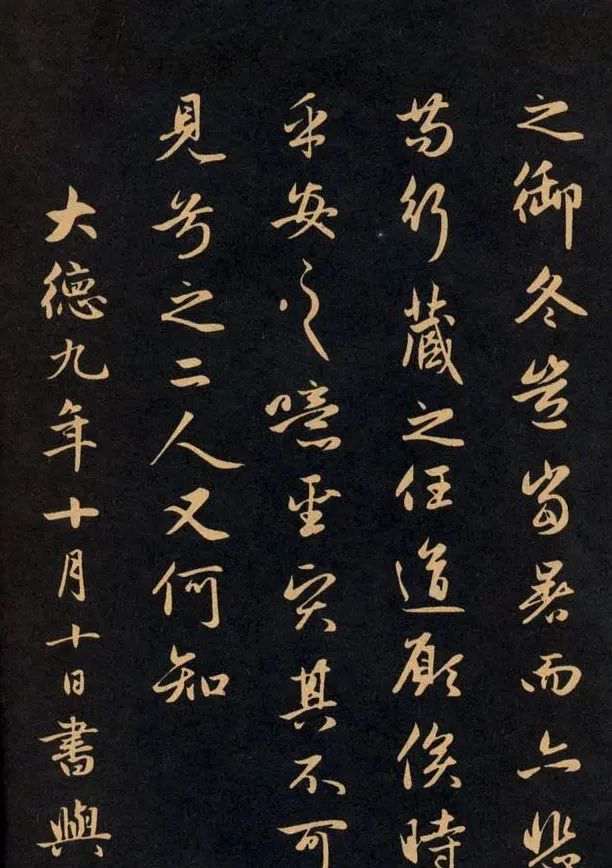 之御冬豈當暑而亦
苟行藏之任道顧俟時
乎安之噫聖賢其不可
見兮之二人又何知
大德九年十月十日書與